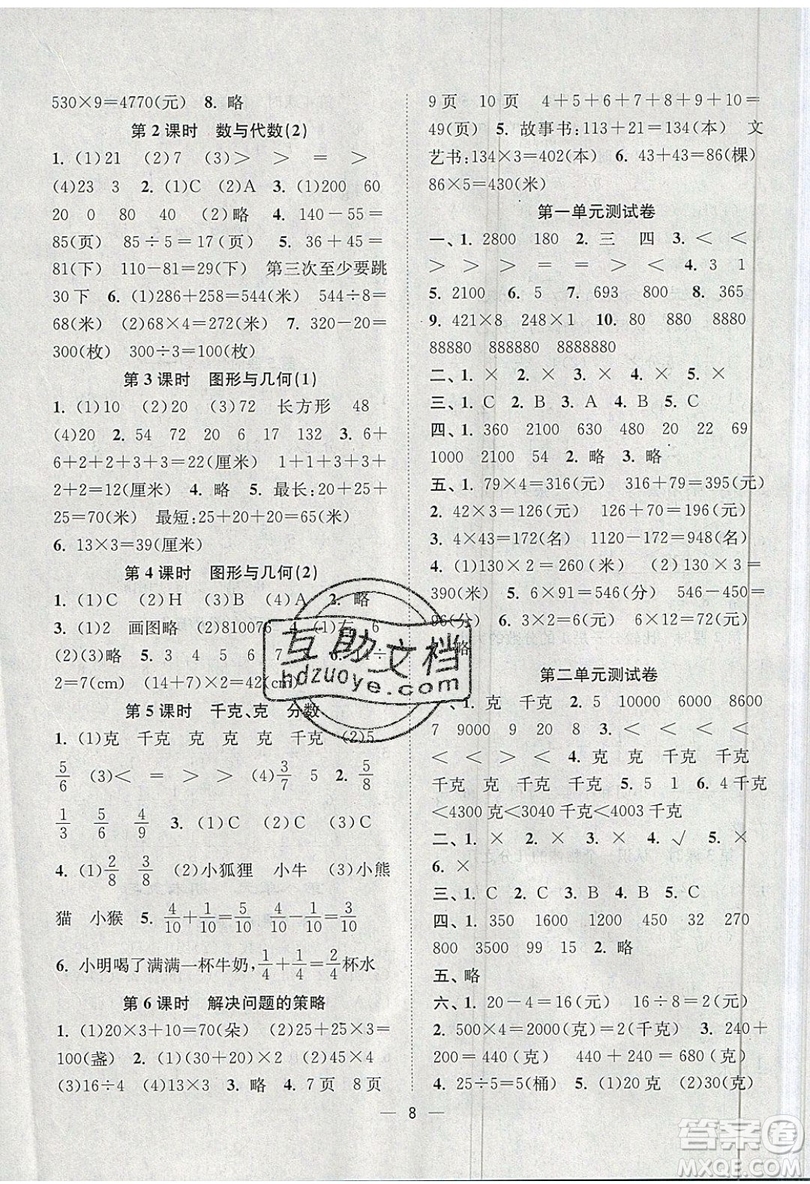 530×9=4770(元)　8. 略
第 2 课时　数与代数(2)
1. (1)21　(2)7　(3)＞　＞　＝　＞
(4)23　3　2. (1)C　(2)A　3. (1)200　60
20　0　80　40　(2)略　4. 140－55＝
85(页)　85÷5＝17(页)　5. 36＋45＝
81(下)　110－81＝29(下)　第三次至少要跳
30 下　6. (1)286＋258＝544(米)　544÷8＝
68(米)　(2)68×4＝272(米)　7. 320－20＝
300(枚)　300÷3＝100(枚)
第 3 课时　图形与几何(1)
1. (1)10　(2)20　(3)72　长方形　48
(4)20　2. 54　72　20　6　17　32　3. 6＋
6＋2＋2＋2＋3＝22(厘米)　1＋1＋3＋3＋
2＋2＝12(厘米)　4. 略　5. 最长:20＋25＋
25＝70(米)　最短:25＋20＋20＝65(米)
6. 13×3＝39(厘米)
第 4 课时　图形与几何(2)
1. (1)C　(2)H　(3)B　(4)A　2. 略
3. (1)2　画图略　(2)810076　4. (1)右　6
(2)略　(3)略　5.
2＝7(cm)　(14＋7)×2＝42(cm)
第 5 课时　千克、克　分数
1. (1)克　千克　克　克　千克　(2)5
5/6　(3)＜　＝　＞　＞　(4)3/7　5　2. 5/6
1/3　5/6　4/9　3. (1)C　(2)C　(3)C
4. (1)2/8　3/8　(2)小狐狸　小牛　(3)小熊
猫　小猴　5. 4/10＋1/10＝5/10　10/10－7/10＝3/10
6. 小明喝了满满一杯牛奶,1/4＋1/4＝2/4杯水
第 6 课时　解决问题的策略
1. (1)20×3＋10＝70(朵)　(2)25×3＋25＝
100(盏)　2. (1)(30＋20)×2　(2)30×2－20
(3)16÷4　(4)13×4　3. 略　4. 7 页　8 页
9 页　10 页　4＋5＋6＋7＋8＋9＋10＝
49(页)　5. 故事书:113＋21＝134(本)　文
艺书:134×3＝402(本)　6. 43＋43＝86(棵)
86×5＝430(米)
第一单元测试卷
一、1. 2800　180　2. 三　四　3. ＜　＜
＞　＞　＞　＝　＝　＞　＜　4. 3　1
5. 2100　6. 5　7. 693　800　8. 365
9. 421×8　248×1　10. 80　880　8880
88880　888880　8888880
二、1. ×　2. ×　3. ×　4. ×　5. ×
三、1. C　2. B　3. A　4. B　5. C
四、1. 360　2100　630　480　20　22　69
1000　2100　54　2. 略　3. 略
五、1. 79×4＝316(元)　316＋79＝395(元)
2. 42×3＝126(元)　126＋70＝196(元)
3. 4×43＝172(名)　1120－172＝948(名)
4. (1)130×2＝260(米)　(2)130×3＝
390(米)　5. 6×91＝546(分)　546－450＝
96(分)　6. 3×2＝6(元)　(2)7×3＝21(元)
略
第二单元测试卷
一、1. 克　千克　2. 5　10000　6000　8600
7　9000　9　20　8　3. ＜　＞　＞　＝
＜　＜　＞　＜　4. 克　克　千克　克
千克　克　千克　千克　5. 5　1　6. 4 千克
＜4300 克＜3040　千克＜4003 千克
二、1. ×　2. ×　3. ×　4. √　5. ×
6. ×
三、1. C　2. C　3. B　4. C　5. C
四、1. 350　1600　4500　1500　450
800　3500　99　2. 略　3. 略
五、略
六、1. 2×8＝16(元)　16÷8＝2(元)
2. 500×4＝2000(克)＝2(千克)　3. 240＋
200＝440(克)　440＋240＝680(克)
4. 25÷5＝5(桶)　5. (1)20 克　(2)30(克)
8
互助文档
hdzuoye.com
答案圈
MXQE.COM